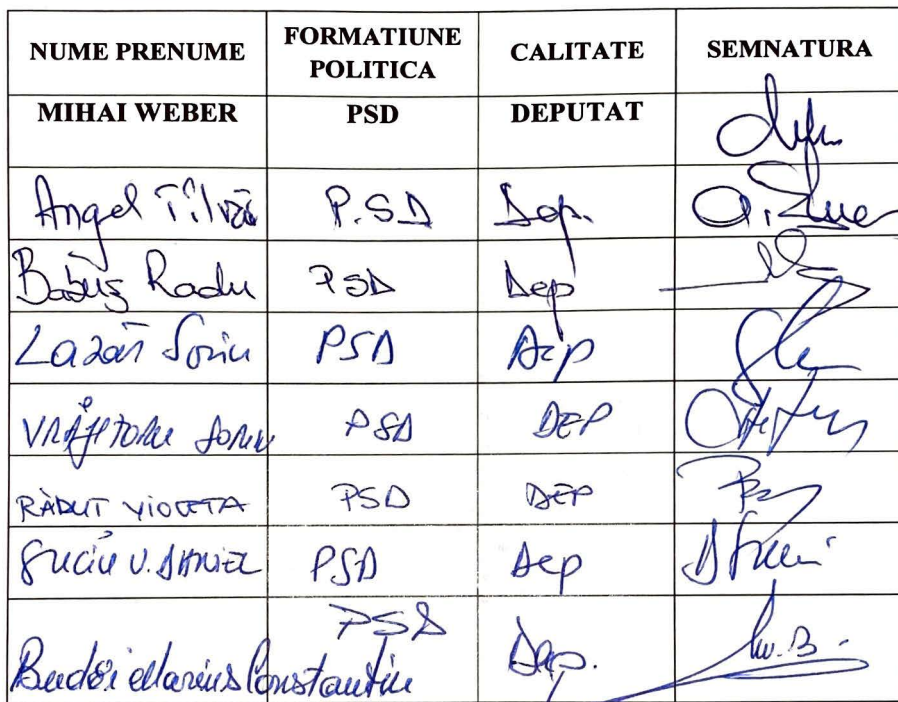 NUME PRENUME FORMATIUNE POLITICA CALITATE SEMNATURA
MIHAI WEBER PSD DEPUTAT
Angel Tîlvăr P.SD Dep.
Babuș Radu PSD Dep
Lazăr Sorin PSD Dep
VRĂJITORU SORIN PSD DEP
RĂDUT VIOLETA PSD DEP
SUCIU V. DANIEL PSD Dep
Budăi Marius Constantin PSD Dep.